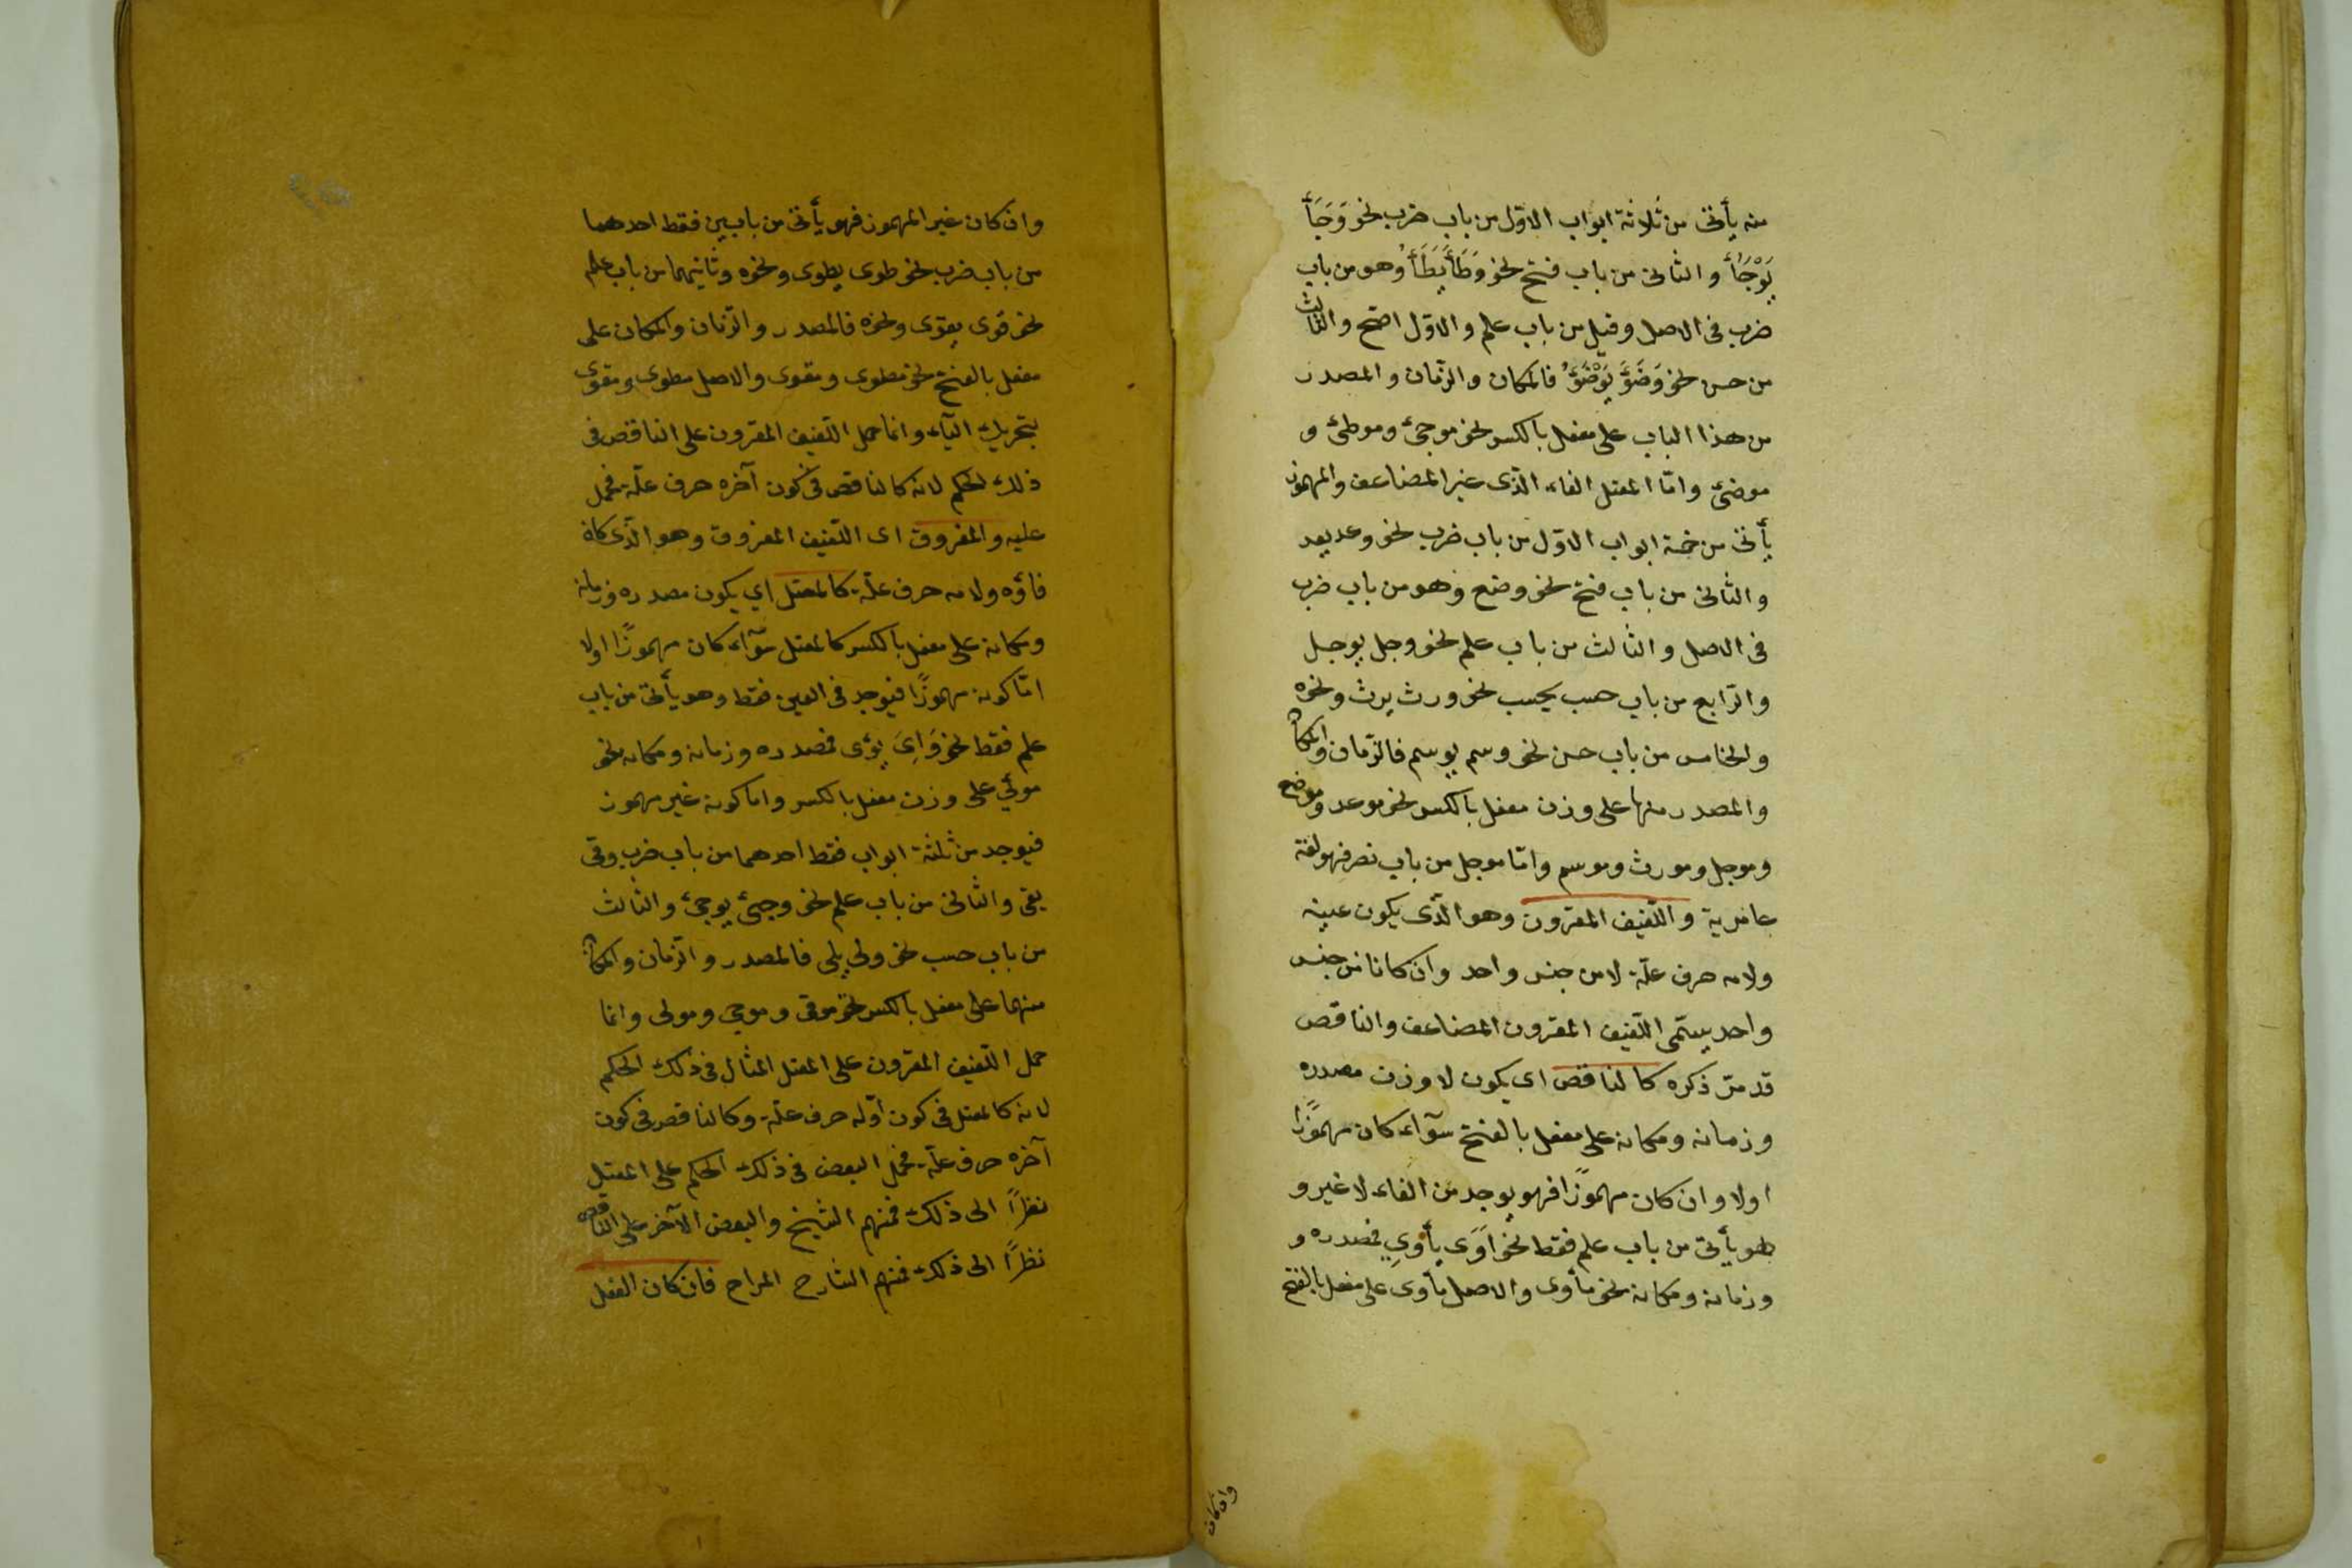 منه يأتى من ثلاثة ابواب الاوّل من باب ضرب نحو وَجَأَ
يَوْجَأُ والثانى من باب فتح نحو وَطَأَ يَطَأُ وهو من باب
ضرب فى الاصل وقيل من باب علم والاوّل اصحّ والثالث
من حسن نحو وَضَؤَ يَوْضَؤُ فالمكان والزّمان والمصدر
من هذا الباب على مفعل بالكسر نحو موجئ وموطئ و
موضئ وامّا المعتل الفاء الذى غير المضاعف والمهموز
يأتى من خمسة ابواب الاوّل من باب ضرب نحو وعد يعد
والثانى من باب فتح نحو وضع وهو من باب ضرب
فى الاصل والثالث من باب علم نحو وجل يوجل
والرّابع من باب حسب يحسب نحو ورث يرث ونحوه
والخامس من باب حسن نحو وسم يوسم فالزّمان والمكان
والمصدر منها على وزن مفعل بالكسر نحو موعد وموضع
وموجل ومورث وموسم وامّا موجل من باب نصر فهو لغة
عامرية واللّفيف المقرون وهو الّذى يكون عينه
ولامه حرف علّة لا من جنس واحد وان كانا من جنس
واحد يسمّى اللّفيف المقرون المضاعف والناقص
قد مرّ ذكره كالناقص اى يكون لا وزن مصدره
وزمانه ومكانه على مفعل بالفتح سوآء كان مهموزًا
اولا وان كان مهموزًا فهو يوجد من الفاء لا غير و
هو يأتى من باب علم فقط نحو اَوَى يأوِي فمصدره و
وزمانه ومكانه نحو مأوى والاصل مأوى على مفعل بالفتح
وان كان
وان كان غير المهموز فهو يأتى من بابين فقط احدهما
من باب ضرب نحو طوى يطوى ونحوه وثانيهما من باب علم
نحو قوى يقوى ونحوه فالمصدر والزّمان والمكان على
مفعل بالفتح نحو مطوى ومقوى والاصل مطوى ومقوى
بتحريك اليآء وانما حمل اللّفيف المقرون على الناقص فى
ذلك الحكم لانه كالناقص فى كون آخره حرف علّة فحمل
عليه والمفروق اى اللّفيف المفروق وهو الّذى كان
فاؤه ولامه حرف علّة كالمعتل اي يكون مصدره وزمانه
ومكانه على مفعل بالكسر كالمعتل سوآء كان مهموزًا اولا
امّا كونه مهموزًا فيوجد فى العين فقط وهو يأتى من باب
علم فقط نحو وَاِيَ يوْى فمصدره وزمانه ومكانه نحو
موئي على وزن مفعل بالكسر واما كونه غير مهموز
فيوجد من ثلثة ابواب فقط احدهما من باب ضرب وقى
يقى والثانى من باب علم نحو وجئ يوجئ والثالث
من باب حسب نحو ولى يلى فالمصدر والزمان والمكان
منهما على مفعل بالكسر نحو موقى وموجى ومولى وانما
حمل اللّفيف المقرون على المعتل المثال فى ذلك الحكم
لانه كالمعتل فى كون اوّله حرف علّة وكالناقص فى كون
آخره حرف علّة فحمل البعض فى ذلك الحكم على المعتل
نظرًا الى ذلك فمنهم الشيخ والبعض الآخر على الناقص
نظرًا الى ذلك فمنهم الشارح المراح فان كان الفعل